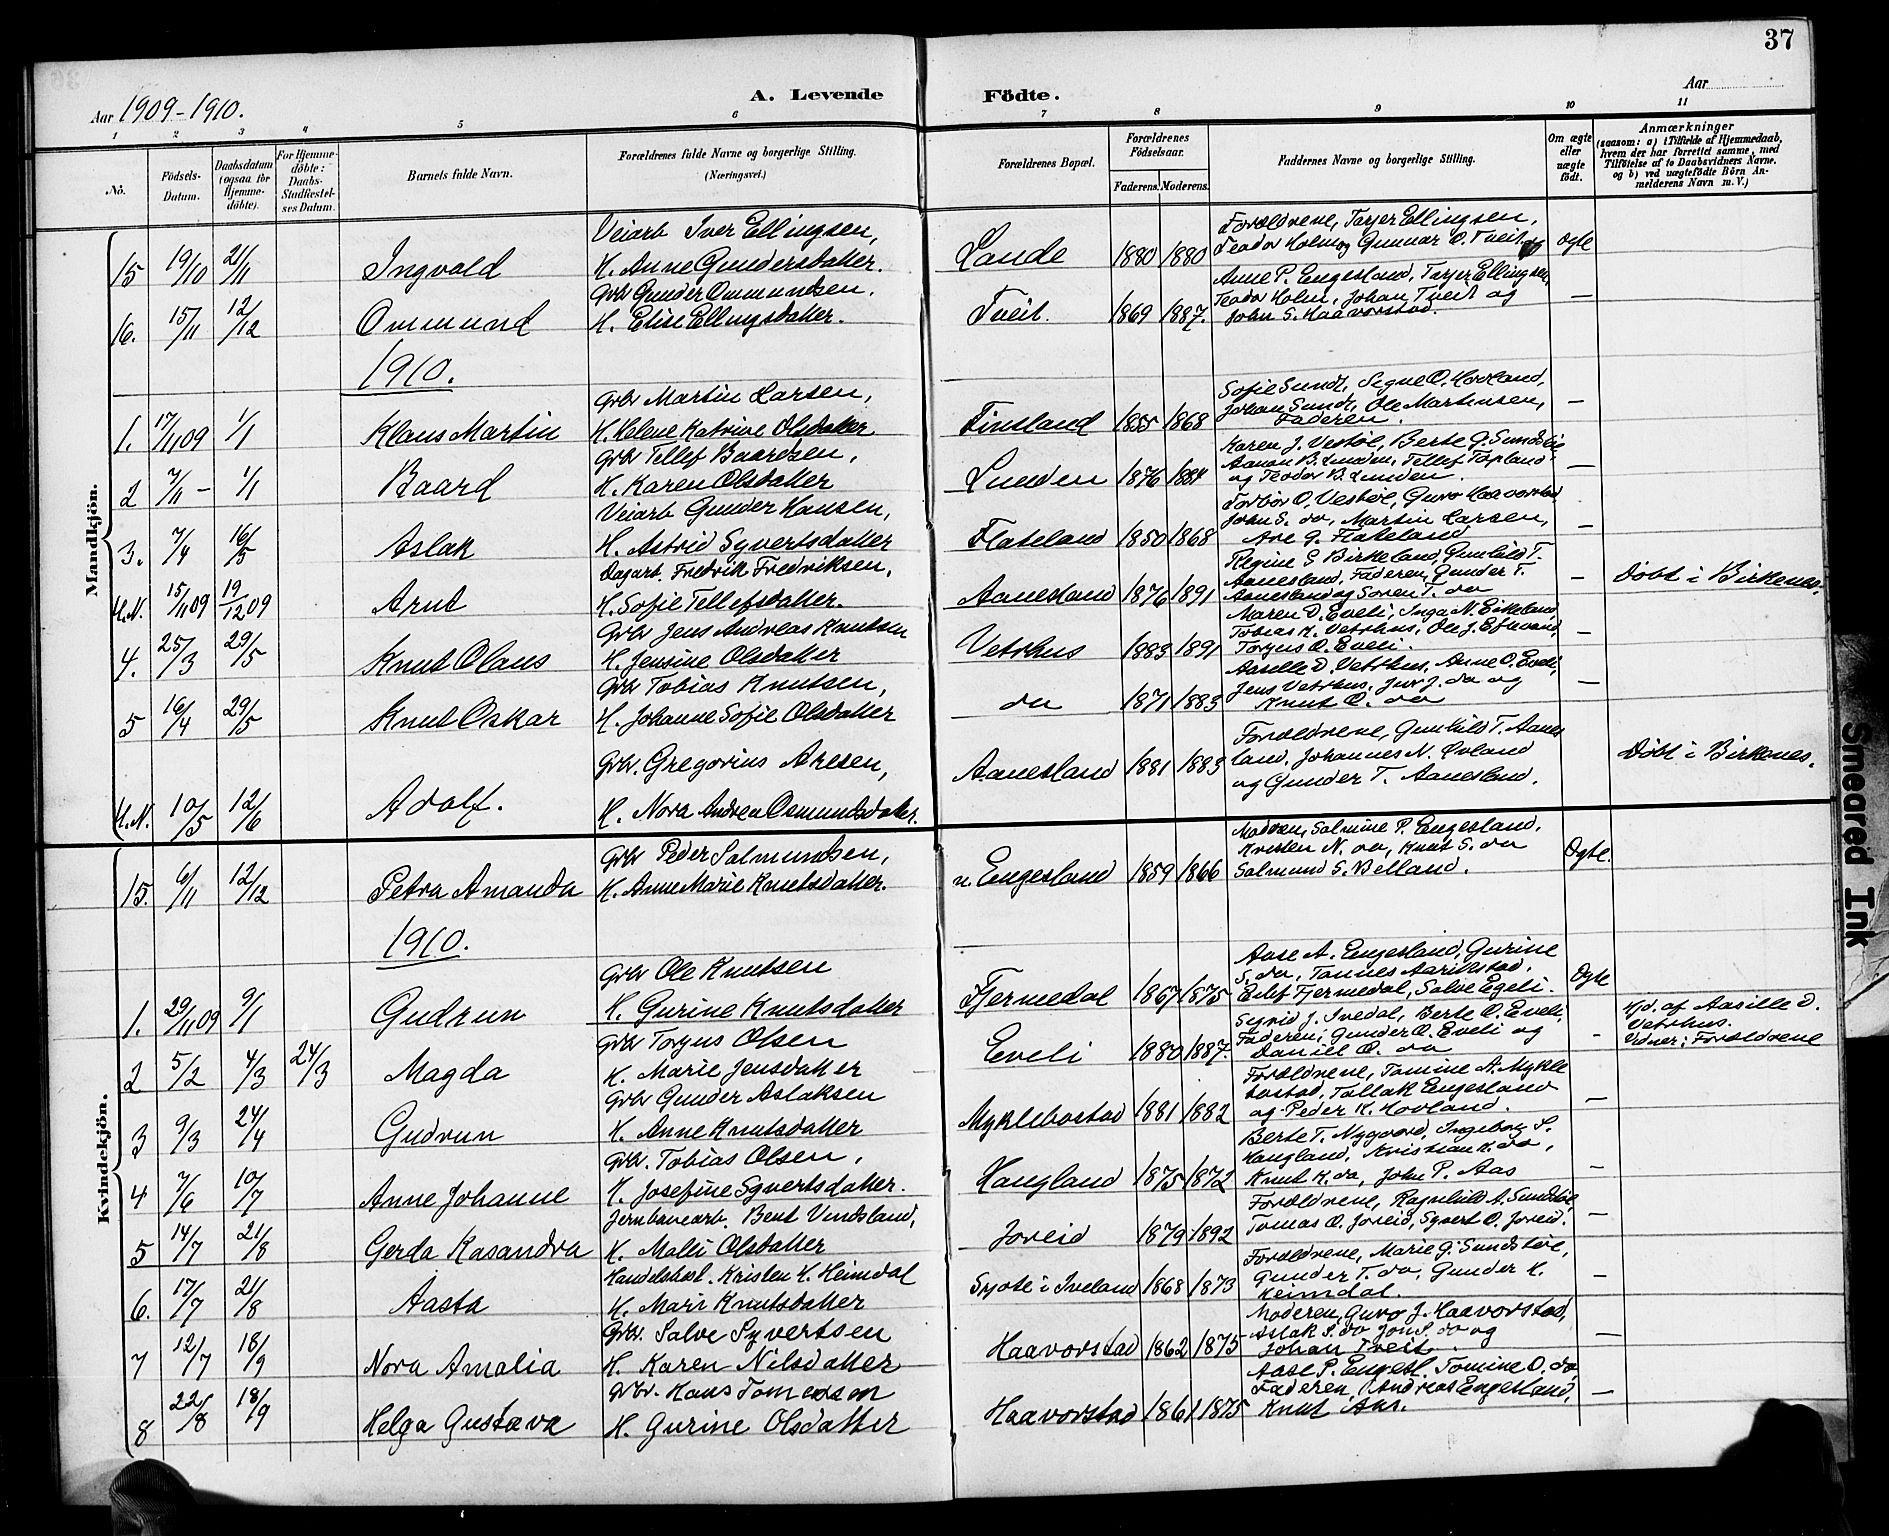 37
Aar 1909-1910.
A. Levende Födte.
Aar
1 2 3 4 5 6 7 8 9 10 11
No.
Födsels-Datum.
Daabsdatum (ogsaa for Hjemme-döbte).
For Hjemme-döbte: Daabs-Stadfestel-ses Datum.
Barnets fulde Navn.
Forældrenes fulde Navne og borgerlige Stilling.
(Næringsvei.)
Forældrenes Bopæl.
Forældrenes Födselsaar.
Faderens. Moderens.
Faddernes Navne og borgerlige Stilling.
Om ægte eller uægte födt.
Anmærkninger
(saasom: a) i Tilfælde af Hjemmedaab, hvem der har forrettet samme, med Tilföielse af to Daabsvidners Navne. og b) ved uægtefödte Börn An-melderens Navn m. V.)
Mandkjön.
15 19/10 21/11 Ingvald
Veiarb Iver Ellingsen,
H. Anne Gundersdatter.
Lande 1880 1880
Forældrene, Tarjer Ellingsen,
Teodor Holm og Gunnar O. Tveit
Ogte
16. 15/11 12/12 Ommund
Grbr Gunder Ommundsen.
H. Elise Ellingsdatter.
Tveit. 1869 1887.
Anne P. Engesland, Tarjer Ellingsen,
Teodor Holm, Johan Tveit og
John S. Haavorstad.
—
1910.
1. 17/11 09 1/1 Klaus Martin
Grbr Martin Larsen,
H. Helene Katrine Olsdatter
Finsland 1835 1868
Sofie Sundt, Signe O. Hovland,
Johan Sundt, Ole Martinsen,
Faderen.
—
2 7/11 - 1/1 Baard
Grbr Tellef Baardsen,
H. Karen Olsdatter
Lunden 1876 1884
Karen J. Vestöl, Berte G. Sundslie
Aanon B. Lunden, Tellef Topland
og Teodor B. Lunden.
—
3. 7/4 16/5 Aslak
Veiarb Gunder Hansen,
H. Astrid Syvertsdatter
Flateland 1850 1868
Torbör O. Vestöl, Guro Haavorstad
John S. do, Martin Larsen,
Are G. Flateland
—
U.N. 15/11 09 19/12 09 Arnt
Dagarb. Fredrik Fredriksen,
H. Sofie Tellefsdatter.
Aanesland 1876 1891
Regine S Birkeland, Gunhild T.
Aanesland, Faderen, Gunder T.
Aanesland og Soren T. do
— Döbt i Birkenes.
4. 25/3 29/5 Knut Olaus
Grbr Jens Andreas Knutsen
H. Jensine Olsdatter
Vetrhus 1883 1891
Maren D. Eveli, Inga N. Eikeland,
Tobias K. Vetrhus, Ole J. Efteland,
Torjus O. Eveli.
—
5 16/4 29/5 Knut Oskar
Grbr Tobias Knutsen,
H. Johanne Sofie Olsdatter
do 1871 1883
Aasille D. Vetrhus, Anne O. Eveli,
Jens Vetrhus, Jur J. do og
Knut O. do
—
U.N. 10/5 12/6 Adolf.
Grbr. Gregorius Aresen,
H. Nora Andrea Osmundsdatter.
Aanesland 1881 1883
Forældrene, Gunhild T. Aanes
land, Johannes N. Övland
og Gunder T. Aanesland.
Döbt i Birkenes.
Kvindekjön.
15. 6/11 12/12 Petra Amanda
Grbr Peder Salmundsen,
H. Anne Marie Knutsdatter.
n. Engesland 1859 1866
Modren, Salmine P. Engesland,
Kristen N. do, Knut S. do
Salmund S. Belland.
Ogte.
1910.
1. 29/11 09 9/1 Gudrun
Grbr Ole Knutsen
H. Gurine Knutsdatter
Fjermedal 1867 1875
Aase A. Engesland, Gurine
S. do, Tannes Aarikstad,
Eilef Fjermedal, Salve Egeli.
Ogte
2 5/2 4/3 24/3 Magda
Grbr Torjus Olsen
H. Marie Jensdatter
Eveli 1880 1887.
Sigrid J. Ivedal, Berte O. Eveli,
Faderen, Gunder O. Eveli og
Daniel O. do
-
Hjd. af Aasille D.
Vetrhus.
Vidner: Forældrene
3 9/3 24/4 Gudrun
Grbr Gunder Aslaksen
H. Anne Knutsdatter
Myklebostad 1881 1882
Forældrene, Tomine A. Mykle
bostad, Tallak Engesland
og Peder K. Hovland.
—
4 7/6 10/7 Anne Johanne
Grbr. Tobias Olsen,
H. Josefine Syvertsdatter.
Haugland 1875 1872
Berte T. Nygaard, Ingeborg S.
Haugland, Kristian K. do,
Knut K. do, John P. Aas
—
5 14/7 21/8 Gerda Kasandra
Jernbanearb. Bent Vindsland,
H. Malli Olsdatter
Joreid 1879 1892
Forældrene, Ragnhild A. Sundslie,
Tomas O. Joreid, Syvert O. Joreid.
—
6. 17/7 21/8 Aasta
Handelsbest. Kristen K. Heimdal
H. Mari Knutsdatter
Syote i Iveland 1868 1873
Forældrene, Marie G. Sundslie,
Gunder T. do, Gunder K.
Heimdal.
—
7 12/7 18/9 Nora Amalia
Grbr. Salve Syvertsen
H. Karen Nilsdatter
Haavorstad 1862 1875
Moderen, Guro J. Haavorstad,
Aslak S. do Jon S. do og
Johan Tveit.
—
8 22/8 18/9 Helga Gustava
Grbr. Hans Tomassen
H. Gurine Olsdatter
Haavorstad 1861 1875
Aase P. Engesl. Tomine O. do,
Faderen, Andreas Engesland,
Knut Aas.
—
Smeared Ink